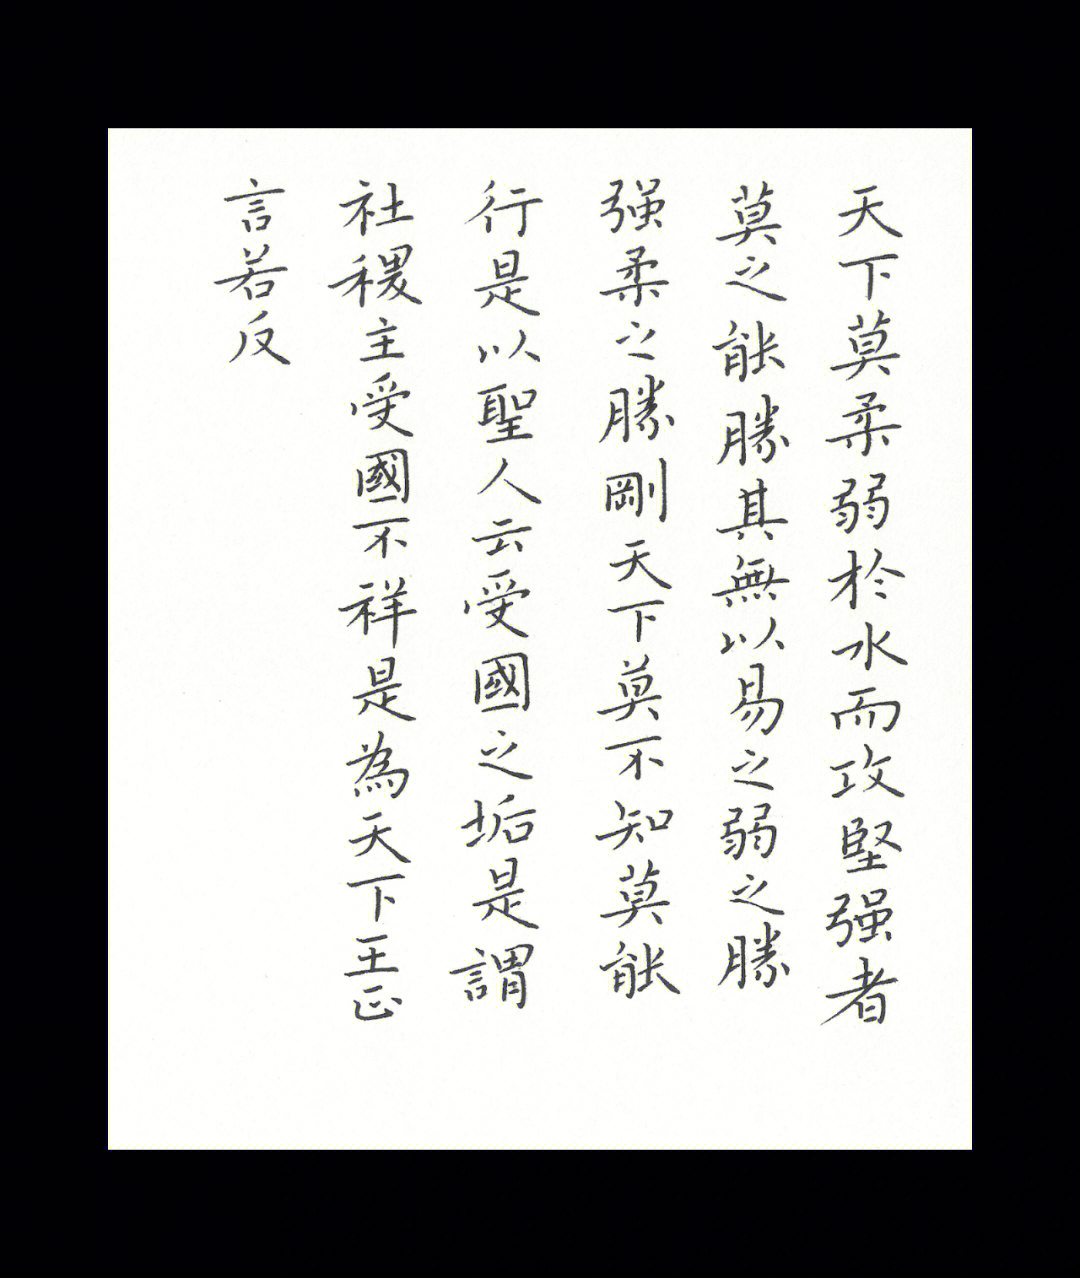 天下莫柔弱於水而攻堅强者
莫之能勝其無以易之弱之勝
强柔之勝剛天下莫不知莫能
行是以聖人云受國之垢是謂
社稷主受國不祥是為天下王正
言若反